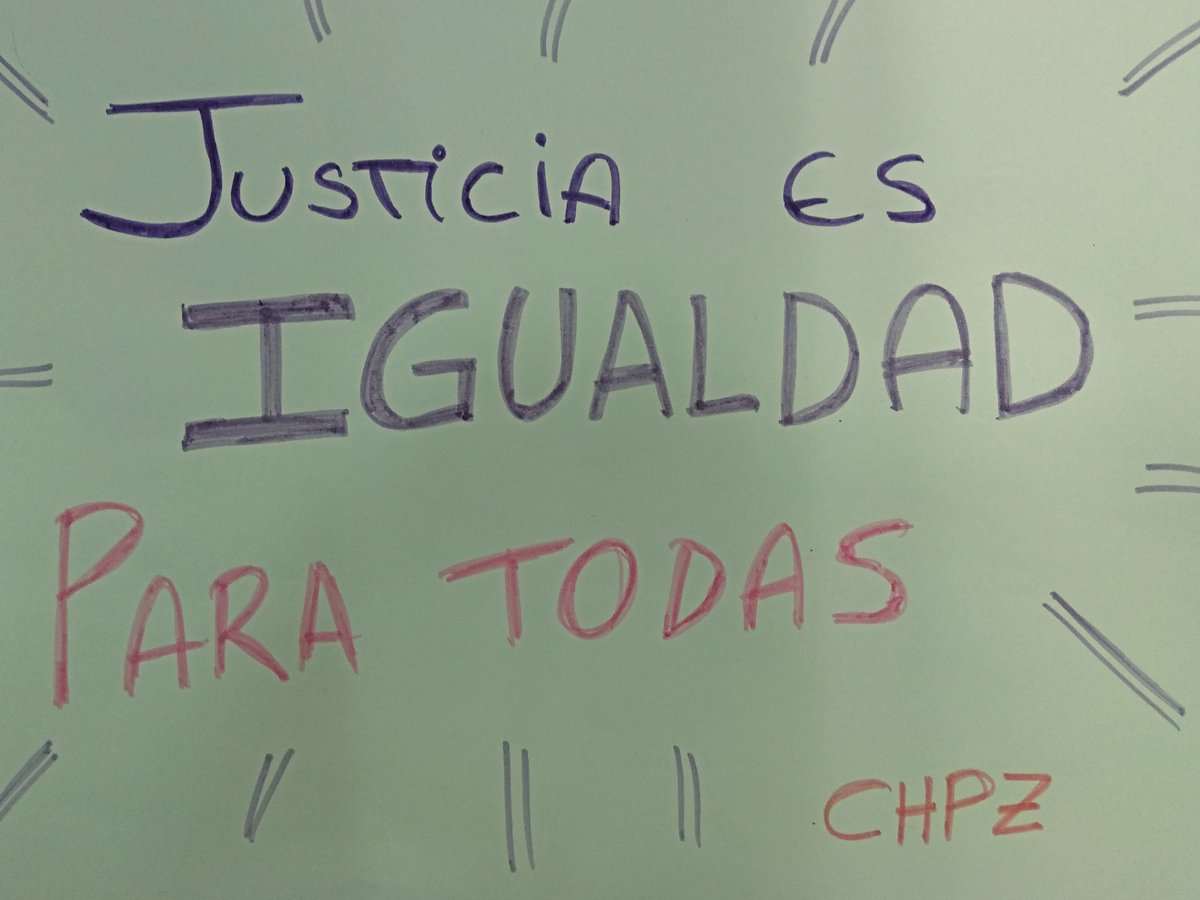 Justicia es
IGUALDAD
PARA TODAS
CHPZ